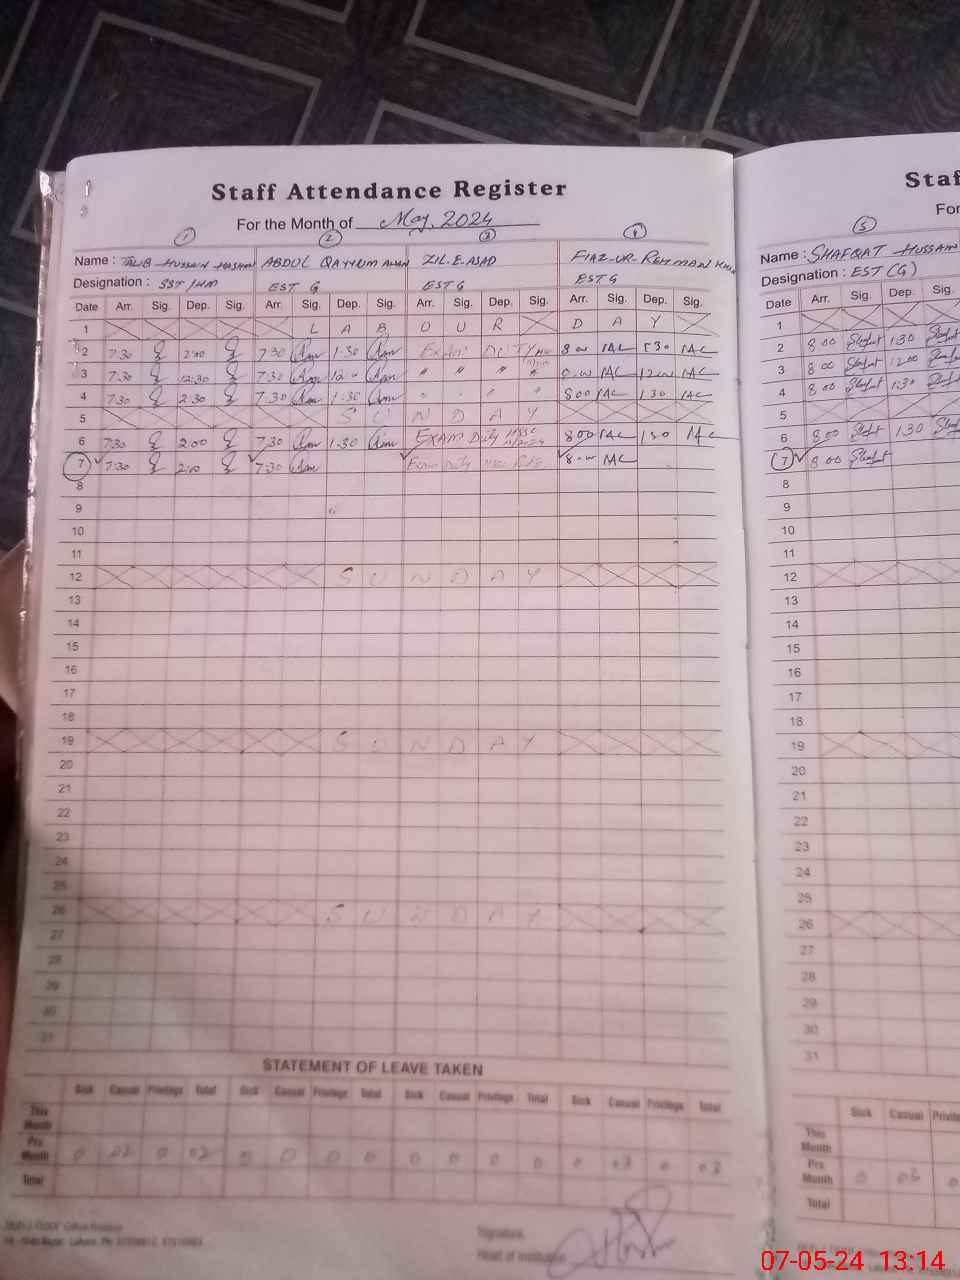 Staff Attendance Register
For the Month of May, 2024
1 2 3 4
Name : TALIB HUSSAIN HASHMI ABDUL QAYYUM AWAN ZIL.E.ASAD FIAZ-UR-REHMAN KHAN
Designation : SST/HM EST G EST G EST G
Date Arr. Sig. Dep. Sig. Arr. Sig. Dep. Sig. Arr. Sig. Dep. Sig. Arr. Sig. Dep. Sig.
1 L A B O U R D A Y
2 7:30 2:00 7:30 1:30 Exam DUTY 8 00 1 30
3 7:30 12:30 7:30 12:00 " " " " 12 00
4 7:30 2:30 7:30 1:30 8 00 1 30
5 S U N D A Y
6 7:30 2:00 7:30 1:30 EXAM Duty 8 00 1 30
7 7:30 2:00 7:30 Exam Duty 8 00
8
9
10
11
12 S U N D A Y
13
14
15
16
17
18
19 S U N D A Y
20
21
22
23
24
25
26 S U N D A Y
27
28
29
30
31
STATEMENT OF LEAVE TAKEN
Sick Casual Privilege Total Sick Casual Privilege Total Sick Casual Privilege Total Sick Casual Privilege Total
This Month
Pre. Month 0 02 0 02 0 0 0 0 0 0 0 0 0 03 0 03
Total
Signature
Head of Institution
Staf
For
5
Name : SHAFQAT HUSSAIN
Designation : EST (G)
Date Arr. Sig. Dep. Sig.
1
2 8 00 1 30
3 8 00 12 00
4 8 00 1 30
5
6 8 00 1 30
7 8 00
8
9
10
11
12
13
14
15
16
17
18
19
20
21
22
23
24
25
26
27
28
29
30
31
Sick Casual
This Month
Pre. Month 0 03 0
Total
07-05-24 13:14